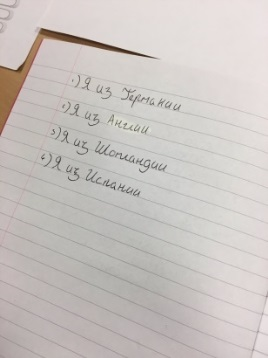 1.) Я из Германии
2) Я из Англии
3) Я из Шотландии
4) Я из Испании